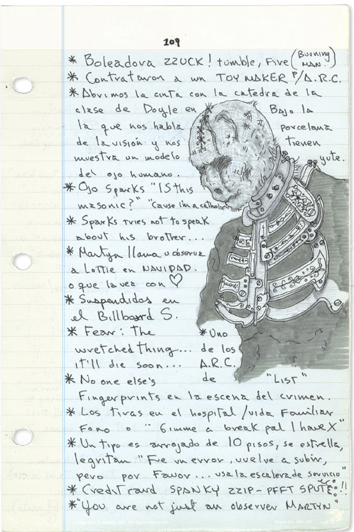 209
* Boleadora ZZUCK! tumble, Five (Burning MAN.)
* Contrataron a un TOY MAKER P/A.R.C.
* Abrimos la cinta con la catedra de la
clase de Doyle en
la que nos habla
de la visión y nos
muestra un modelo
del ojo humano.
Bajo la
porcelana
tienen
yute.
* Ojo Sparks "IS this
masonic?" "Cause i'm a catholic
* Sparks tries not to speak
about his brother...
* Martyn llama u observa
a Lottie en NAVIDAD.
o que la vez con ♡
* Suspendidos en
el Billboard S.
* Fear: The
wretched thing...
it'll die soon...
* Uno
de los
A.R.C.
de "LIST"
* No one else's
Fingerprints en la escena del crimen.
* Los tiras en el hospital/vida familiar
Fono o "Gimme a break pal I have X"
* Un tipo es arrojado de 10 pisos, se estrella,
legritan "Fue un error, vuelve a subir,
pero por Favor... usa la escalera de servicio"
* Credit card SPANKY ZZIP-PFFT SPUTS!!
* "You are not just an observer MARTYN"